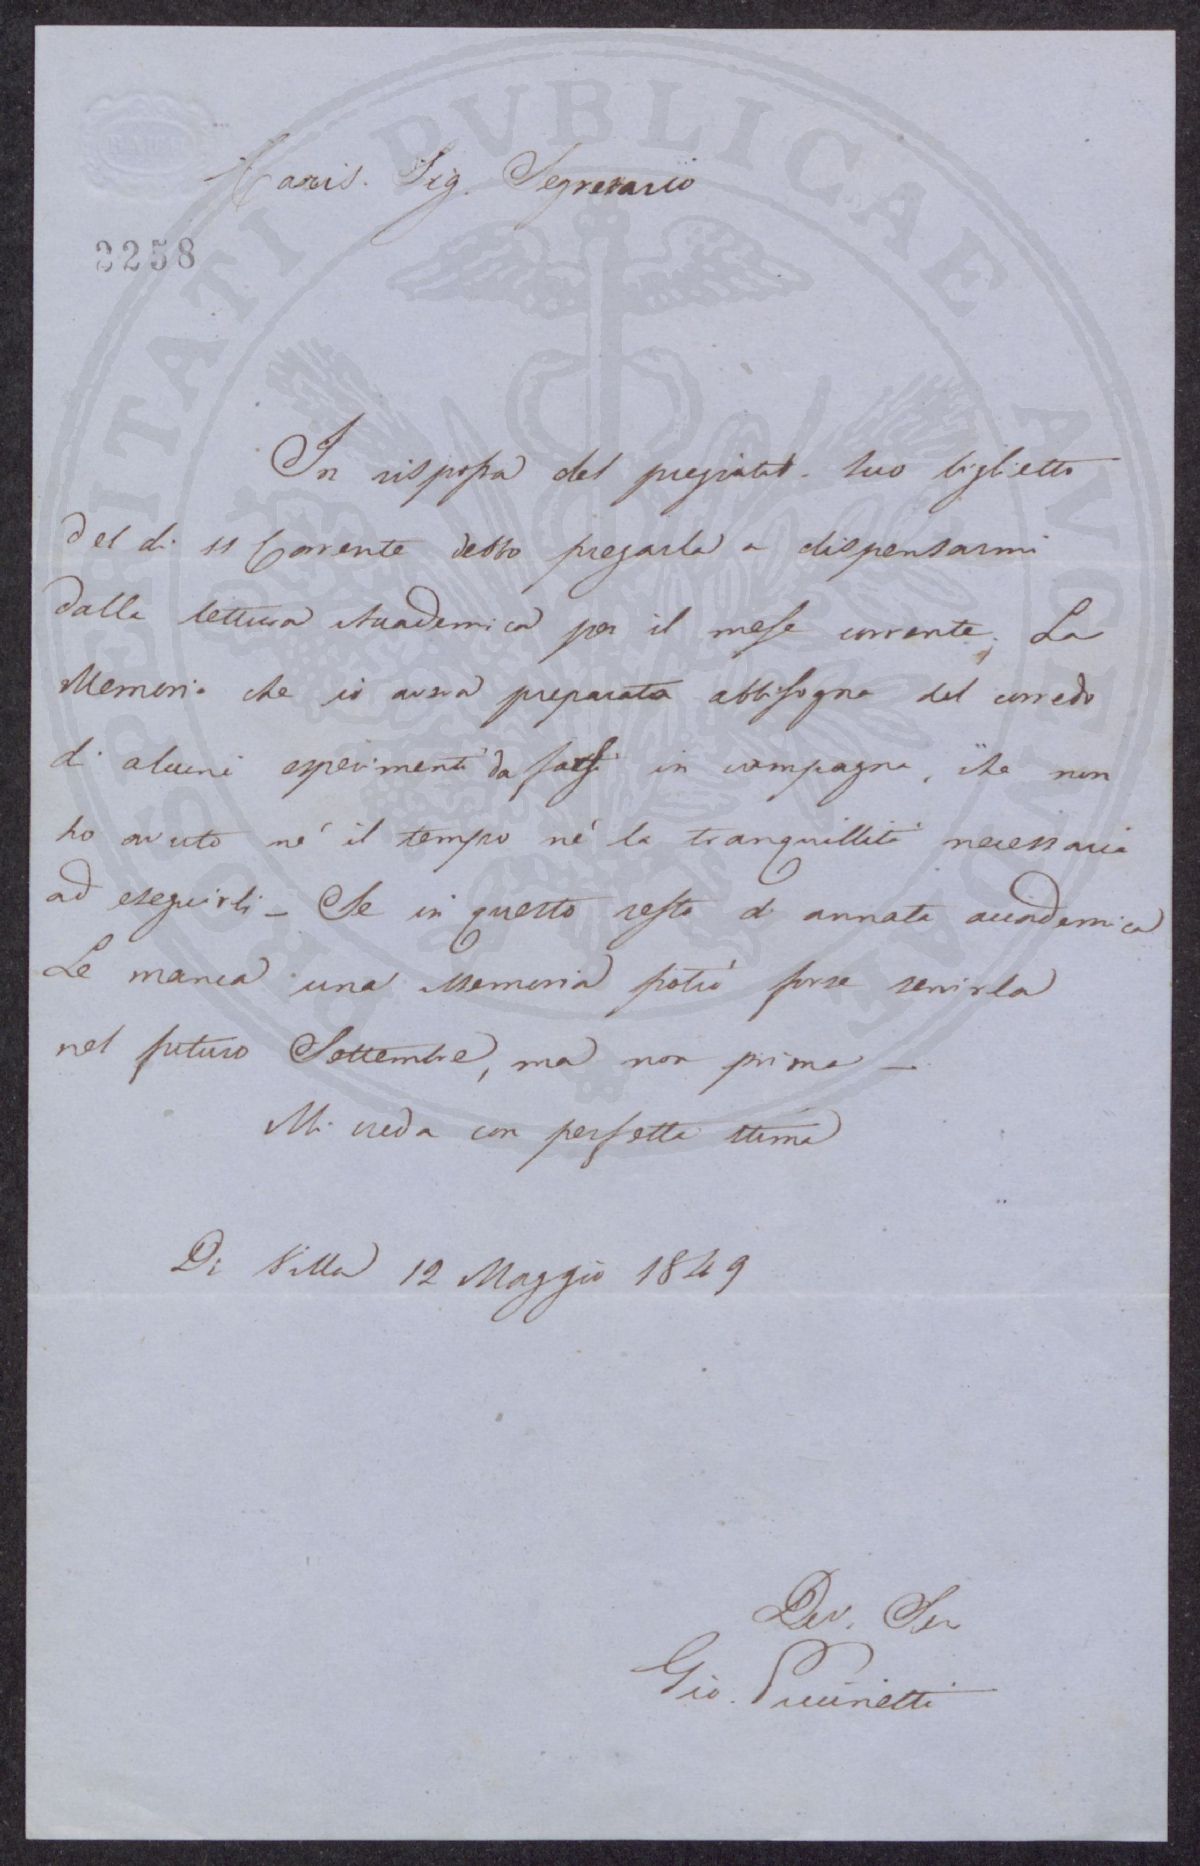 BATH
Cariss. Sig. Segretario
2258
In risposta del pregiatis. suo biglietto
del di 11 Corrente debbo pregarla a dispensarmi
dalla lettura Accademica per il mese corrente. La
Memoria che io aveva preparata abbisogna del corredo
di alcuni esperimenti da farsi in campagna, che non
ho avuto nè il tempo nè la tranquillità necessaria
ad eseguirli — Se in questo resto di annata accademica
Le manca una Memoria potrò forse servirla
nel futuro Settembre, ma non prima —
Mi creda con perfetta stima
Di Villa 12 Maggio 1849
Dev. Ser
Gio. Puccinetti
PROSPERITATI PVBLICAE AVGENDAE